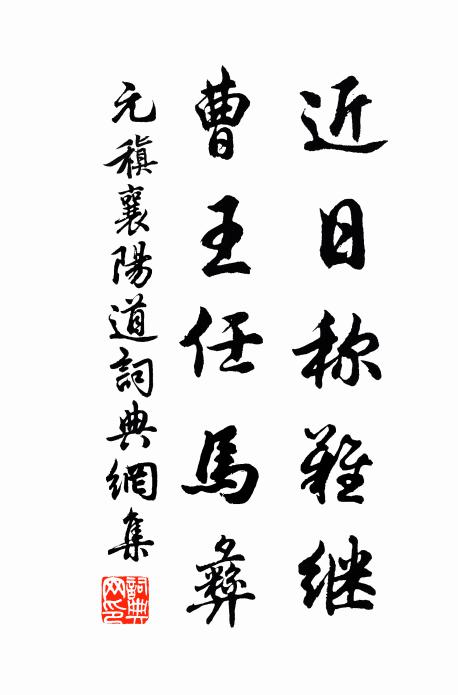 近日称難继
曹王任馬彝
元稹襄陽道詞典網集
詞典网印